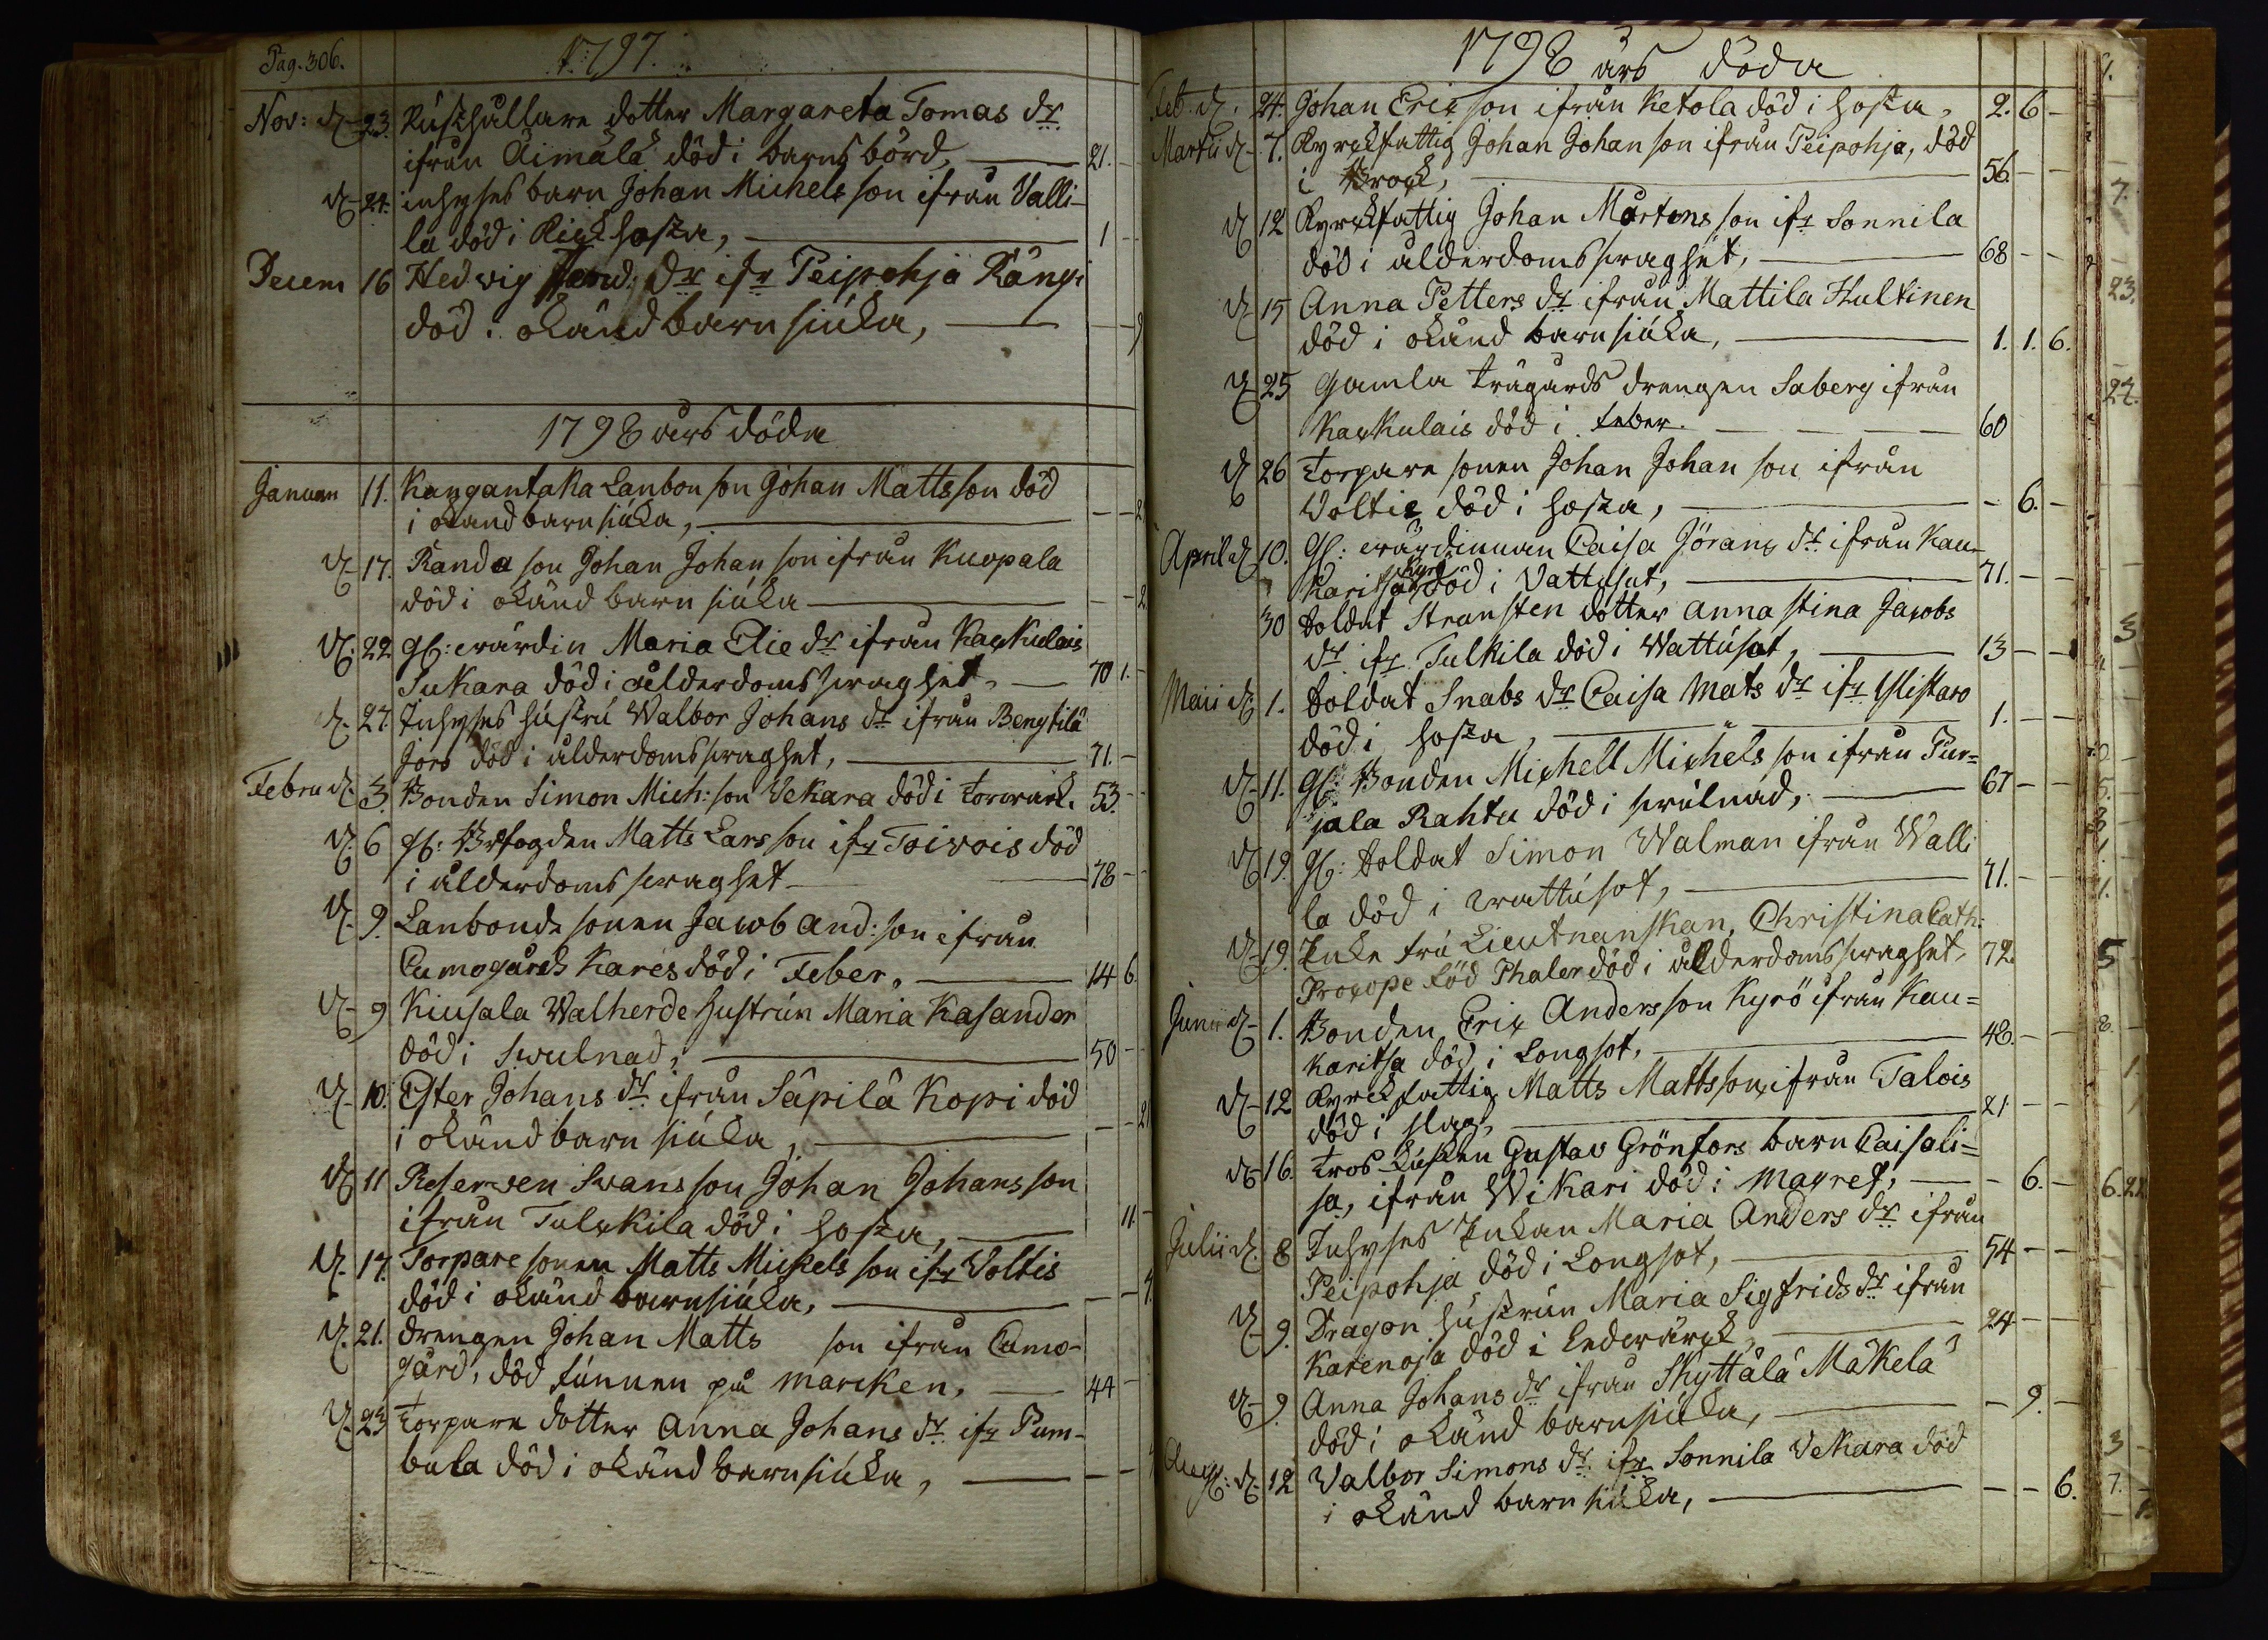 Pag. 306.
1797.
Nov: d. 23. Rusthållare dotter Margareta Tomas dr
ifrån Äimälä död i barns börd, 21. -
d. 24. inhyses barn Johan Michels son ifrån Valli-
la död i Kickhosta, 1 -
Decem 16 Hedvig dr ifr Peipohja Rängi
död i okänd barnsiuka, - - 9
1798 års döda
Januari 11. Kangantaka Lanbon son Johan Matts son död
i okänd barnsiuka, - - 2
d. 17. Randa son Johan Johan son ifrån Kuopala
död i okänd barn siuka - - 2.
d. 22 gl: wärdin Maria Elie dr ifrån Kaukulais
Sukara död i ålderdoms swaghet, 70 1. -
d. 27. Inhyses hustru Walbor Johans dr ifrån Bengtilä
Jors död i ålderdoms swaghet, 71. -
Febru d. 3. Bonden Simon Mich: son Vekara död i torrwärk. 53. -
d. 6 gl: Brofogden Matts Lars son ifr Toivois död
i ålderdoms swaghet 78 -
d. 9. Lanbonde sonen Jacob And: son ifrån
Cumogårds Karés död i Feber, 14 6.
d. 9 Kiusala Walherde hustrun Maria Kasander
död i swulnad, 50 -
d. 10. Ester Johans dr ifrån Säpilä Kopi död
i okänd barn siuka, - - 21
d. 11 Reserwen Swans son Johan Johans son
ifrån Tulckila död i hosta, 11. -
d. 17. Torpare sonen Matts Mickels son ifr Voltis
död i okänd barnsiuka, - - 4.
d. 21. drengen Johan Matts son ifrån Cumo-
gård, död funnen på marcken, 44 -
d. 23 Torpare dotter Anna Johans dr ifr Pum-
bula död i okänd barnsiuka, - -
1798 års döda
Feb. d. 24. Johan Eric son ifrån Ketola död i hosta, 2. 6 -
Martii d. 7. Kyrckfattig Johan Johan son ifrån Peipohja, död
i Brock, 56. - -
d. 12 Kyrckfattig Johan Mårtens son ifr Sonnila
död i ålderdoms swaghet, 68 - -
d. 15 Anna Petters dr ifrån Mattila Hultinen
död i okänd barn siuka, 1. 1. 6.
d. 25 Gamla trägårds drengen Saberg ifrån
Kaukulais död i feber. 60
d. 26 Torpare sonen Johan Johan son ifrån
Voltis död i hosta, - 6. -
April d. 10. Gl: wärdinnan Caisa Jörans dr ifrån Kau-
karitsa Kyrö död i Vattusot, 71. - -
30 Soldat Stransten dotter Anna Stina Jacobs
dr ifr Tulkila död i Wattusot, 13 - -
Maii d. 1. Soldat Snabs dr Caisa Mats dr ifr Ylistaro
död i hosta, 1. - -
d. 11. gl: Bonden Michell Michels son ifrån Pur=
jala Rahtu död i swulnad, 67 - -
d. 19. gl: Soldat Simon Walman ifrån Walli
la död i wattusot, 71. - -
d. 19. Enke fru Lieutnanskan, Christina Cath:
Procope född Phaler död i ålderdoms swaghet, 72.
Junii d. 1. Bonden Eric Anders son Kyrö ifrån Kau=
karitsa död i Longsot, 48. - -
d. 12 Kyrckfattig Matts Matts son ifrån Talois
död i slag, 21 - -
d. 16. Tros kusken Gustav Grönfors barn Caisa li=
sa, ifrån Wikari död i Magref, - 6. -
Julii d. 8 Inhyses Enkan Maria Anders dr ifrån
Peipohja död i Longsot, 54 - -
d. 9. Dragon hustrun Maria Sigfrids dr ifrån
Karenoja död i Ledwärck, 24 - -
d. 9. Anna Johans dr ifrån Skyttälä Mäkelä
död i okänd barnsiuka, - 9. -
Aug: d. 12 Valbor Simons dr ifr Sonnila Vekara död
i okänd barn siuka, - - 6.